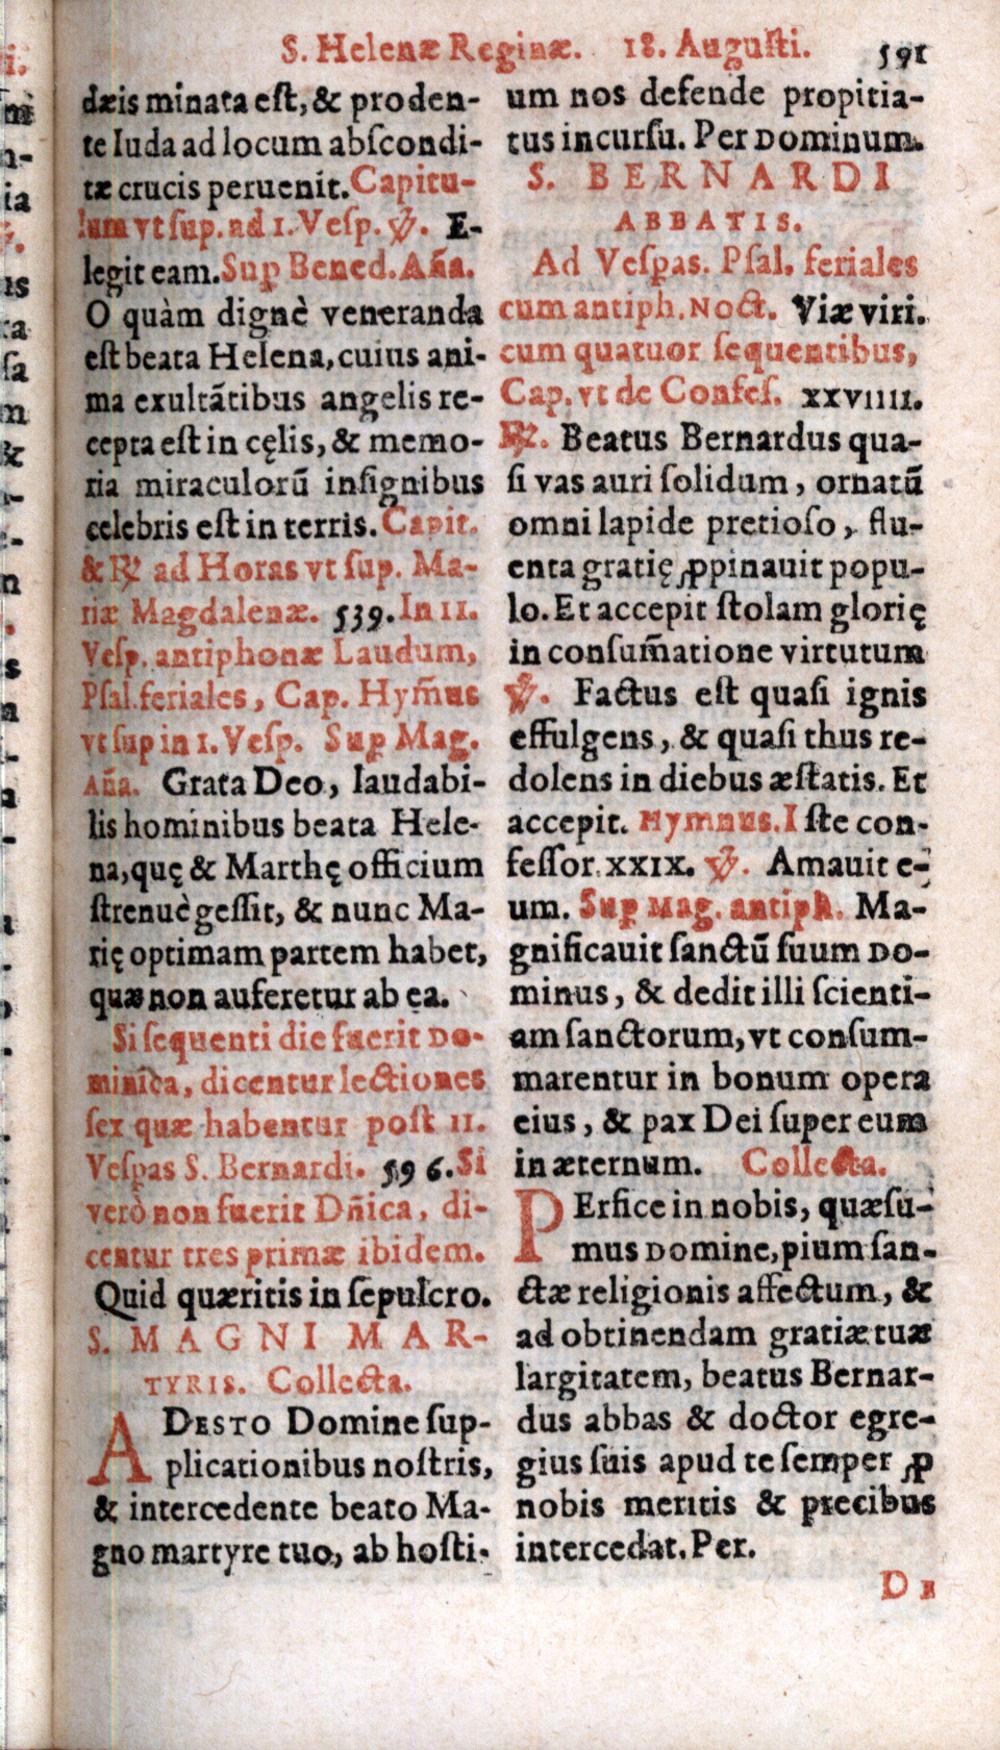 S. Helenæ Reginæ. 18. Augusti. 591
dæis minata est, & proden-
te Iuda ad locum abscondi-
tæ crucis peruenit. Capitu-
lum vt sup. ad 1. Vesp. ℣. E-
legit eam. Sup Bened. Aña.
O quàm dignè veneranda
est beata Helena, cuius ani-
ma exultãtibus angelis re-
cepta est in cęlis, & memo-
ria miraculorũ insignibus
celebris est in terris. Capit.
& ℟ ad Horas vt sup. Ma-
riæ Magdalenæ. 539. In II.
Vesp. antiphonæ Laudum,
Psal. feriales, Cap. Hym̃us
vt sup in 1. Vesp. Sup Mag.
Aña. Grata Deo, laudabi-
lis hominibus beata Hele-
na, quę & Marthę officium
strenuè gessit, & nunc Ma-
rię optimam partem habet,
quæ non auferetur ab ea.
Si sequenti die fuerit Do-
minica, dicentur lectiones
sex quæ habentur post II.
Vespas S. Bernardi. 596. Si
verò non fuerit Dñica, di-
centur tres primæ ibidem.
Quid quæritis in sepulcro.
S. MAGNI MAR-
TYRIS. Collecta.
ADESTO Domine sup-
plicationibus nostris,
& intercedente beato Ma-
gno martyre tuo, ab hosti-
um nos defende propitia-
tus incursu. Per Dominum.
S. BERNARDI
ABBATIS.
Ad Vespas. Psal. feriales
cum antiph. Noct. Viæ viri.
cum quatuor sequentibus,
Cap. vt de Confes. XXVIIII.
℟. Beatus Bernardus qua-
si vas auri solidum, ornatũ
omni lapide pretioso, flu-
enta gratię ꝓpinauit popu-
lo. Et accepit stolam glorię
in consum̃atione virtutum
℣. Factus est quasi ignis
effulgens, & quasi thus re-
dolens in diebus æstatis. Et
accepit. Hymnus. Iste con-
fessor. XXIX. ℣. Amauit e-
um. Sup Mag. antiph. Ma-
gnificauit sanctũ suum Do-
minus, & dedit illi scienti-
am sanctorum, vt consum-
marentur in bonum opera
eius, & pax Dei super eum
in æternum. Collecta.
PErfice in nobis, quæsu-
mus Domine, pium san-
ctæ religionis affectum, &
ad obtinendam gratiæ tuæ
largitatem, beatus Bernar-
dus abbas & doctor egre-
gius suis apud te semper ꝓ
nobis meritis & precibus
intercedat. Per.
DE